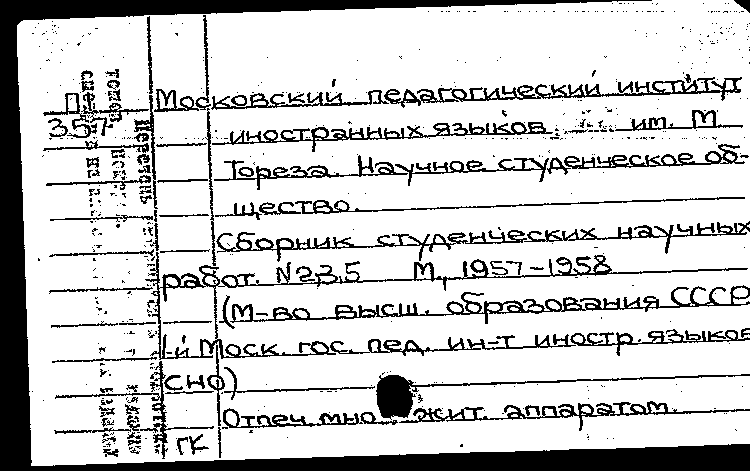 П
357
Московский педагогический институт
иностранных языков им. М
Тореза. Научное студенческое об-
щество.
Сборник студенческих научных
работ. N2,3,5 М., 1957-1958
(М-во высш. образования СССР
1-й Моск. гос. пед. ин-т иностр. языков
СНО)
Отпеч. мно жит. аппаратом.
ГК